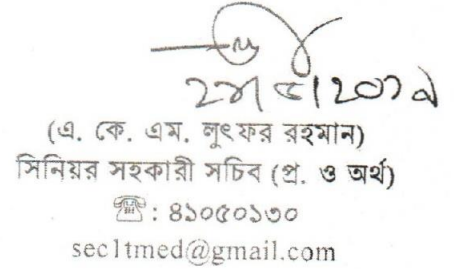 (এ. কে. এম. লুৎফর রহমান)
সিনিয়র সহকারী সচিব (প্র. ও অর্থ)
☎ : ৪১০৫০১৩০
sec1tmed@gmail.com